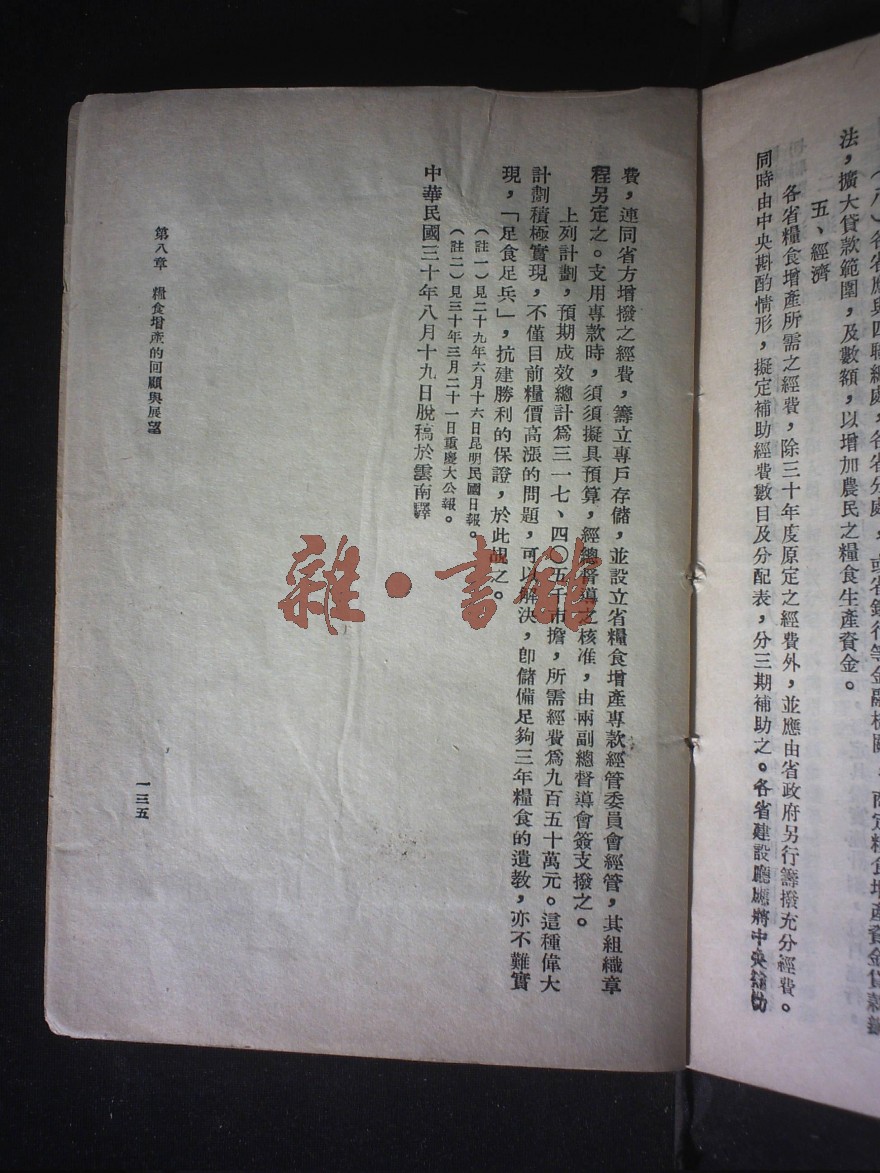 (八)各省應與四聯總處,各省分處,或省銀行等金融機關,商定糧食增產資金貸款辦
法,擴大貸款範圍,及數額,以增加農民之糧食生產資金。
五、經濟
各省糧食增產所需之經費,除三十年度原定之經費外,並應由省政府另行籌撥充分經費。
同時由中央斟酌情形,擬定補助經費數目及分配表,分三期補助之。各省建設廳應將中央補助
費,連同省方增撥之經費,籌立專戶存儲,並設立省糧食增產專款經管委員會經管,其組織章
程另定之。支用專款時,須須擬具預算,經總督導之核准,由兩副總督導會簽支撥之。
上列計劃,預期成效總計為三一七、四〇五千市擔,所需經費為九百五十萬元。這種偉大
計劃積極實現,不僅目前糧價高漲的問題,可以解決,卽儲備足夠三年糧食的遺教,亦不難實
現,「足食足兵」,抗建勝利的保證,於此覘之。
(註一)見二十九年六月十六日昆明民國日報。
(註二)見三十年三月二十一日重慶大公報。
中華民國三十年八月十九日脫稿於雲南驛
第八章 糧食增產的回顧與展望
一三五
雜·書館